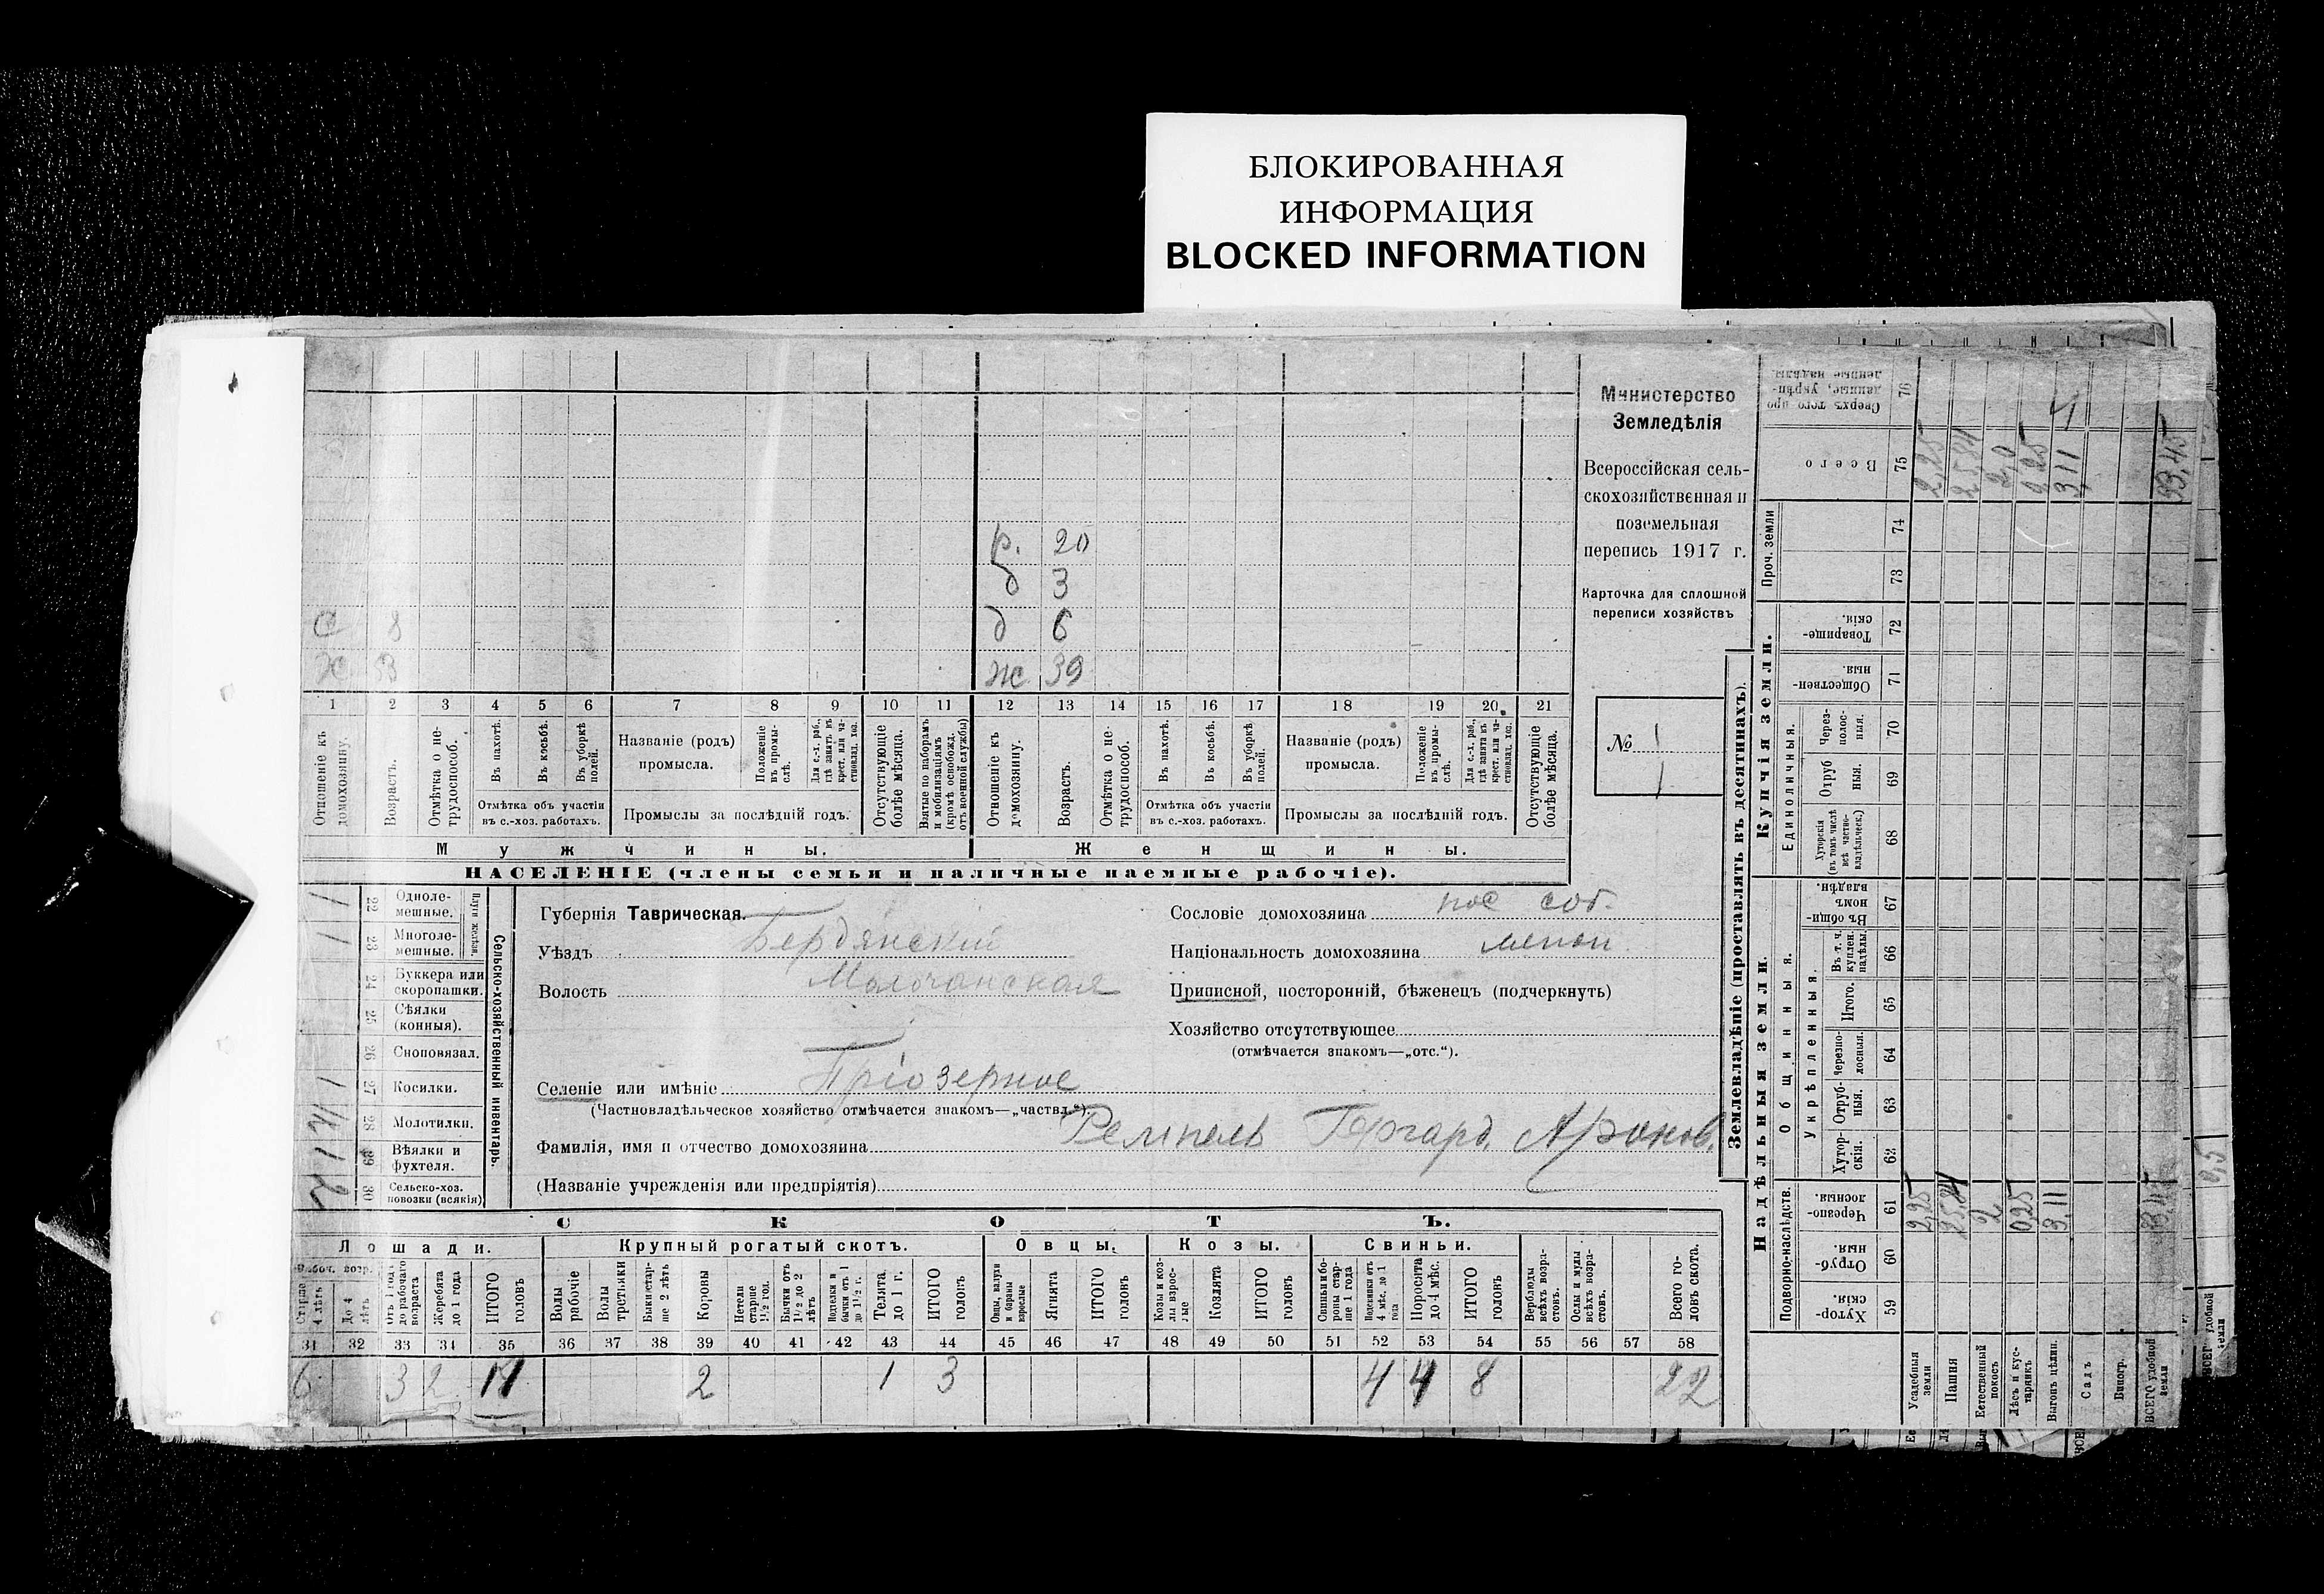 БЛОКИРОВАННАЯ
ИНФОРМАЦИЯ
BLOCKED INFORMATION
Министерство
Земледѣлія
Всероссійская сель-
скохозяйственная и
поземельная
перепись 1917 г.
Карточка для сплошной
переписи хозяйствъ
№ 1
1
р. 20
д 3
с 8 д 6
ж 39
1 2 3 4 5 6 7 8 9 10 11 12 13 14 15 16 17 18 19 20 21
Отношеніе къ домохозяину.
Возрастъ.
Отмѣтка о не-трудоспособ.
Въ пахотѣ.
Въ косьбѣ.
Въ уборкѣ полей.
Отмѣтка объ участіи
въ с.-хоз. работахъ.
Названіе (родъ)
промысла.
Положеніе въ промы-слѣ.
Для с.-х. раб., гдѣ занятъ въ крест. или ча-стновлад. хоз.
Промыслы за послѣдній годъ.
Отсутствующіе болѣе мѣсяца.
Взятые по наборамъ и мобилизаціямъ (кромѣ освобожд. отъ военной службы)
Отношеніе къ домохозяину.
Возрастъ.
Отмѣтка о не-трудоспособ.
Въ пахотѣ.
Въ косьбѣ.
Въ уборкѣ полей.
Отмѣтка объ участіи
въ с.-хоз. работахъ.
Названіе (родъ)
промысла.
Положеніе въ промы-слѣ.
Для с.-х. раб., гдѣ занята въ крест. или ча-стновлад. хоз.
Промыслы за послѣдній годъ.
Отсутствующіе болѣе мѣсяца.
Мужчины. Женщины.
НАСЕЛЕНІЕ (члены семьи и наличные наемные рабочіе).
Губернія Таврическая.
Уѣздъ Бердянскій
Волость Молочанская
Селеніе или имѣніе Пріозерное
(Частновладѣльческое хозяйство отмѣчается знакомъ—„частвл.“).
Фамилія, имя и отчество домохозяина Ремпель Гергард. Аронов.
(Названіе учрежденія или предпріятія)
Сословіе домохозяина пос соб.
Національность домохозяина менон
Приписной, посторонній, бѣженецъ (подчеркнуть)
Хозяйство отсутствующее
(отмѣчается знакомъ—„отс.“).
Сельско-хозяйственный инвентарь.
Плуги желѣзн.
1 22 Одноле-мешные.
1 23 Многоле-мешные.
24 Буккера или скоропашки.
25 Сѣялки (конныя).
26 Сноповязал.
1 27 Косилки.
28 Молотилки.
1 29 Вѣялки и фухтеля.
2 30 Сельско-хоз. повозки (всякія)
СКОТЪ.
Лошади. Крупный рогатый скотъ. Овцы. Козы. Свиньи.
Рабоч. возр.
Старше 4 лѣтъ
До 4 лѣтъ
Отъ 1 года до рабочаго возраста
Жеребята до 1 года
ИТОГО головъ
Волы рабочіе
Волы третьяки
Быки стар-ше 2 лѣтъ
Коровы
Нетели старше 1½ год.
Бычки отъ 1½ до 2 лѣтъ
Подтелки и бычки отъ 1 до 1½ г.
Телята до 1 г.
ИТОГО головъ
Овцы, валухи и бараны взрослые
Ягнята
ИТОГО головъ
Козы и коз-лы взрос-лые
Козлята
ИТОГО головъ
Свиньи и бо-ровы стар-ше 1 года
Подсвинки отъ 4 мѣс. до 1 года
Поросята до 4 мѣс.
ИТОГО головъ
Верблюды всѣхъ возра-стовъ.
Ослы и мулы всѣхъ возра-стовъ.
Всего го-ловъ скота.
31 32 33 34 35 36 37 38 39 40 41 42 43 44 45 46 47 48 49 50 51 52 53 54 55 56 57 58
6 3 2 11 2 1 3 4 4 8 22
Землевладѣніе (проставлять въ десятинахъ).
Надѣльныя земли. Купчія земли.
Подворно-наслѣдств.
Общинныя.
Укрѣпленныя.
Единоличныя.
Проч. земли
Хутор-скія. 59
Отруб-ныя. 60
Черезпо-лосныя. 61
Хутор-скія. 62
Отруб-ныя. 63
Черезпо-лосныя. 64
Итого. 65
Въ т. ч. куплен. надѣлы. 66
Въ общин-номъ владѣн. 67
Хуторскія (въ томъ числѣ всѣ частно-владѣльческ.) 68
Отруб ныя. 69
Через-полос-ныя. 70
Обществен-ныя. 71
Товарище-скія. 72
73
74
Всего 75
Сверхъ того про-данные, укрѣп-ленные надѣлы. 76
Усадебныя земли 2,25 2,25
Пашня 25,84
Естественный покосъ 2 2,0
Лѣсъ и кус-тарникъ 0,25 0,25
Выгонъ цѣлин. 3,11 3,11
Садъ
Виногр.
ВСЕГО удобной земли 33,45
4